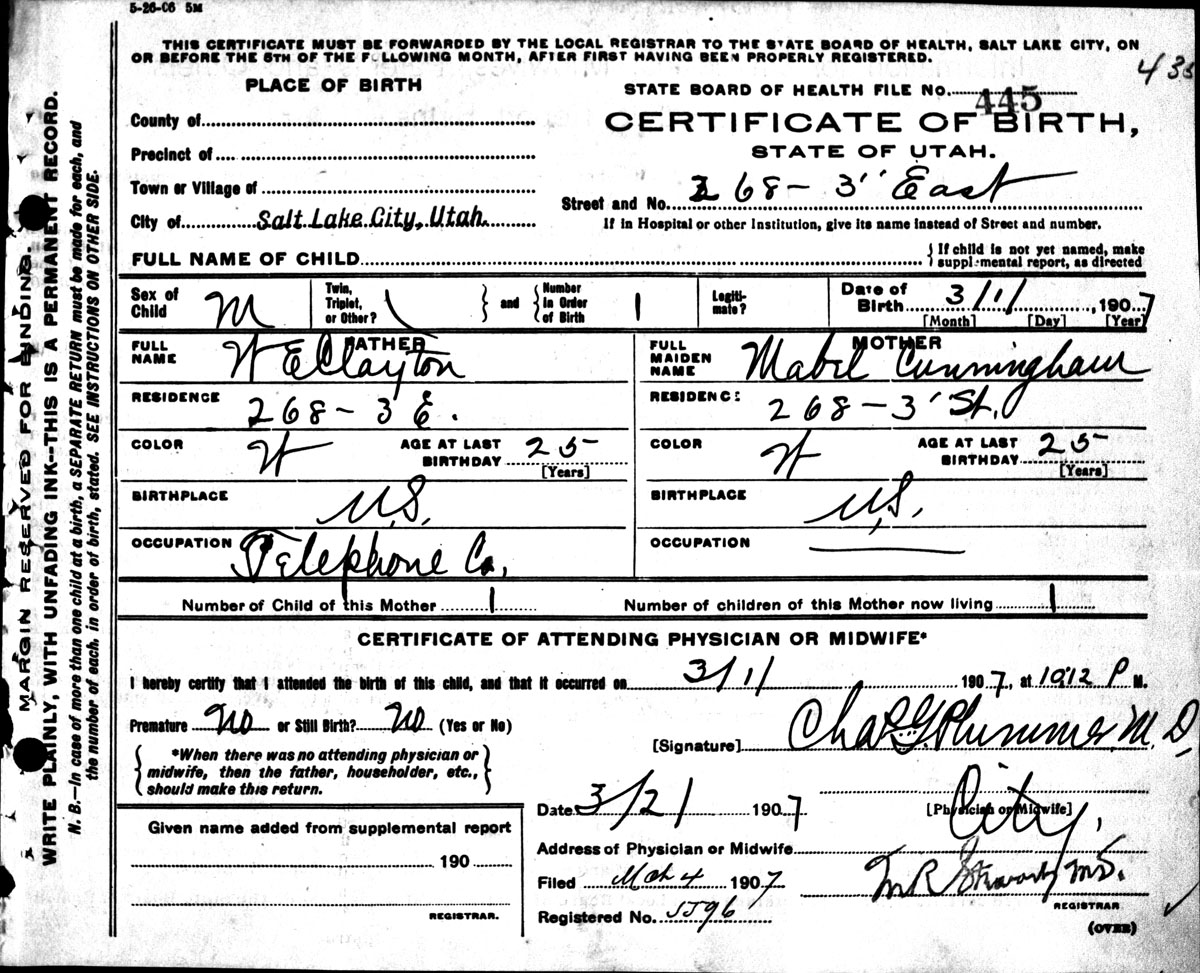 5-26-06 5M
THIS CERTIFICATE MUST BE FORWARDED BY THE LOCAL REGISTRAR TO THE STATE BOARD OF HEALTH, SALT LAKE CITY, ON
OR BEFORE THE 5TH OF THE FOLLOWING MONTH, AFTER FIRST HAVING BEEN PROPERLY REGISTERED.
435
PLACE OF BIRTH
STATE BOARD OF HEALTH FILE No. 445
County of
CERTIFICATE OF BIRTH,
Precinct of
STATE OF UTAH.
Town or Village of
Street and No. 268 - 3'' East
City of Salt Lake City, Utah.
If in Hospital or other Institution, give its name instead of Street and number.
FULL NAME OF CHILD
{ If child is not yet named, make
supplemental report, as directed
Sex of Child M
Twin, Triplet, or Other?
and
Number in Order of Birth 1
Legitimate?
Date of Birth 3/1/, 1907
[Month] [Day] [Year]
FATHER
FULL NAME W E Clayton
RESIDENCE 268 - 3 E.
COLOR W
AGE AT LAST BIRTHDAY 25
[Years]
BIRTHPLACE U.S.
OCCUPATION Telephone Co.
MOTHER
FULL MAIDEN NAME Mabel Cunningham
RESIDENCE 268 - 3' St.
COLOR W
AGE AT LAST BIRTHDAY 25
[Years]
BIRTHPLACE U.S.
OCCUPATION
Number of Child of this Mother 1
Number of children of this Mother now living 1
CERTIFICATE OF ATTENDING PHYSICIAN OR MIDWIFE*
I hereby certify that I attended the birth of this child, and that it occurred on 3/1/ 1907, at 1012 P M.
Premature No or Still Birth? No (Yes or No)
[Signature] Chas G Plummer M.D.
*When there was no attending physician or
midwife, then the father, householder, etc.,
should make this return.
[Physician or Midwife]
Date 3/2/ 1907
Given name added from supplemental report
190
REGISTRAR.
Address of Physician or Midwife City.
Filed Mch 4 1907
M R Stewart M.D.
REGISTRAR
Registered No. 5596
(OVER)
MARGIN RESERVED FOR BINDING.
WRITE PLAINLY, WITH UNFADING INK--THIS IS A PERMANENT RECORD.
N. B.—In case of more than one child at a birth, a SEPARATE RETURN must be made for each, and
the number of each, in order of birth, stated. SEE INSTRUCTIONS ON OTHER SIDE.